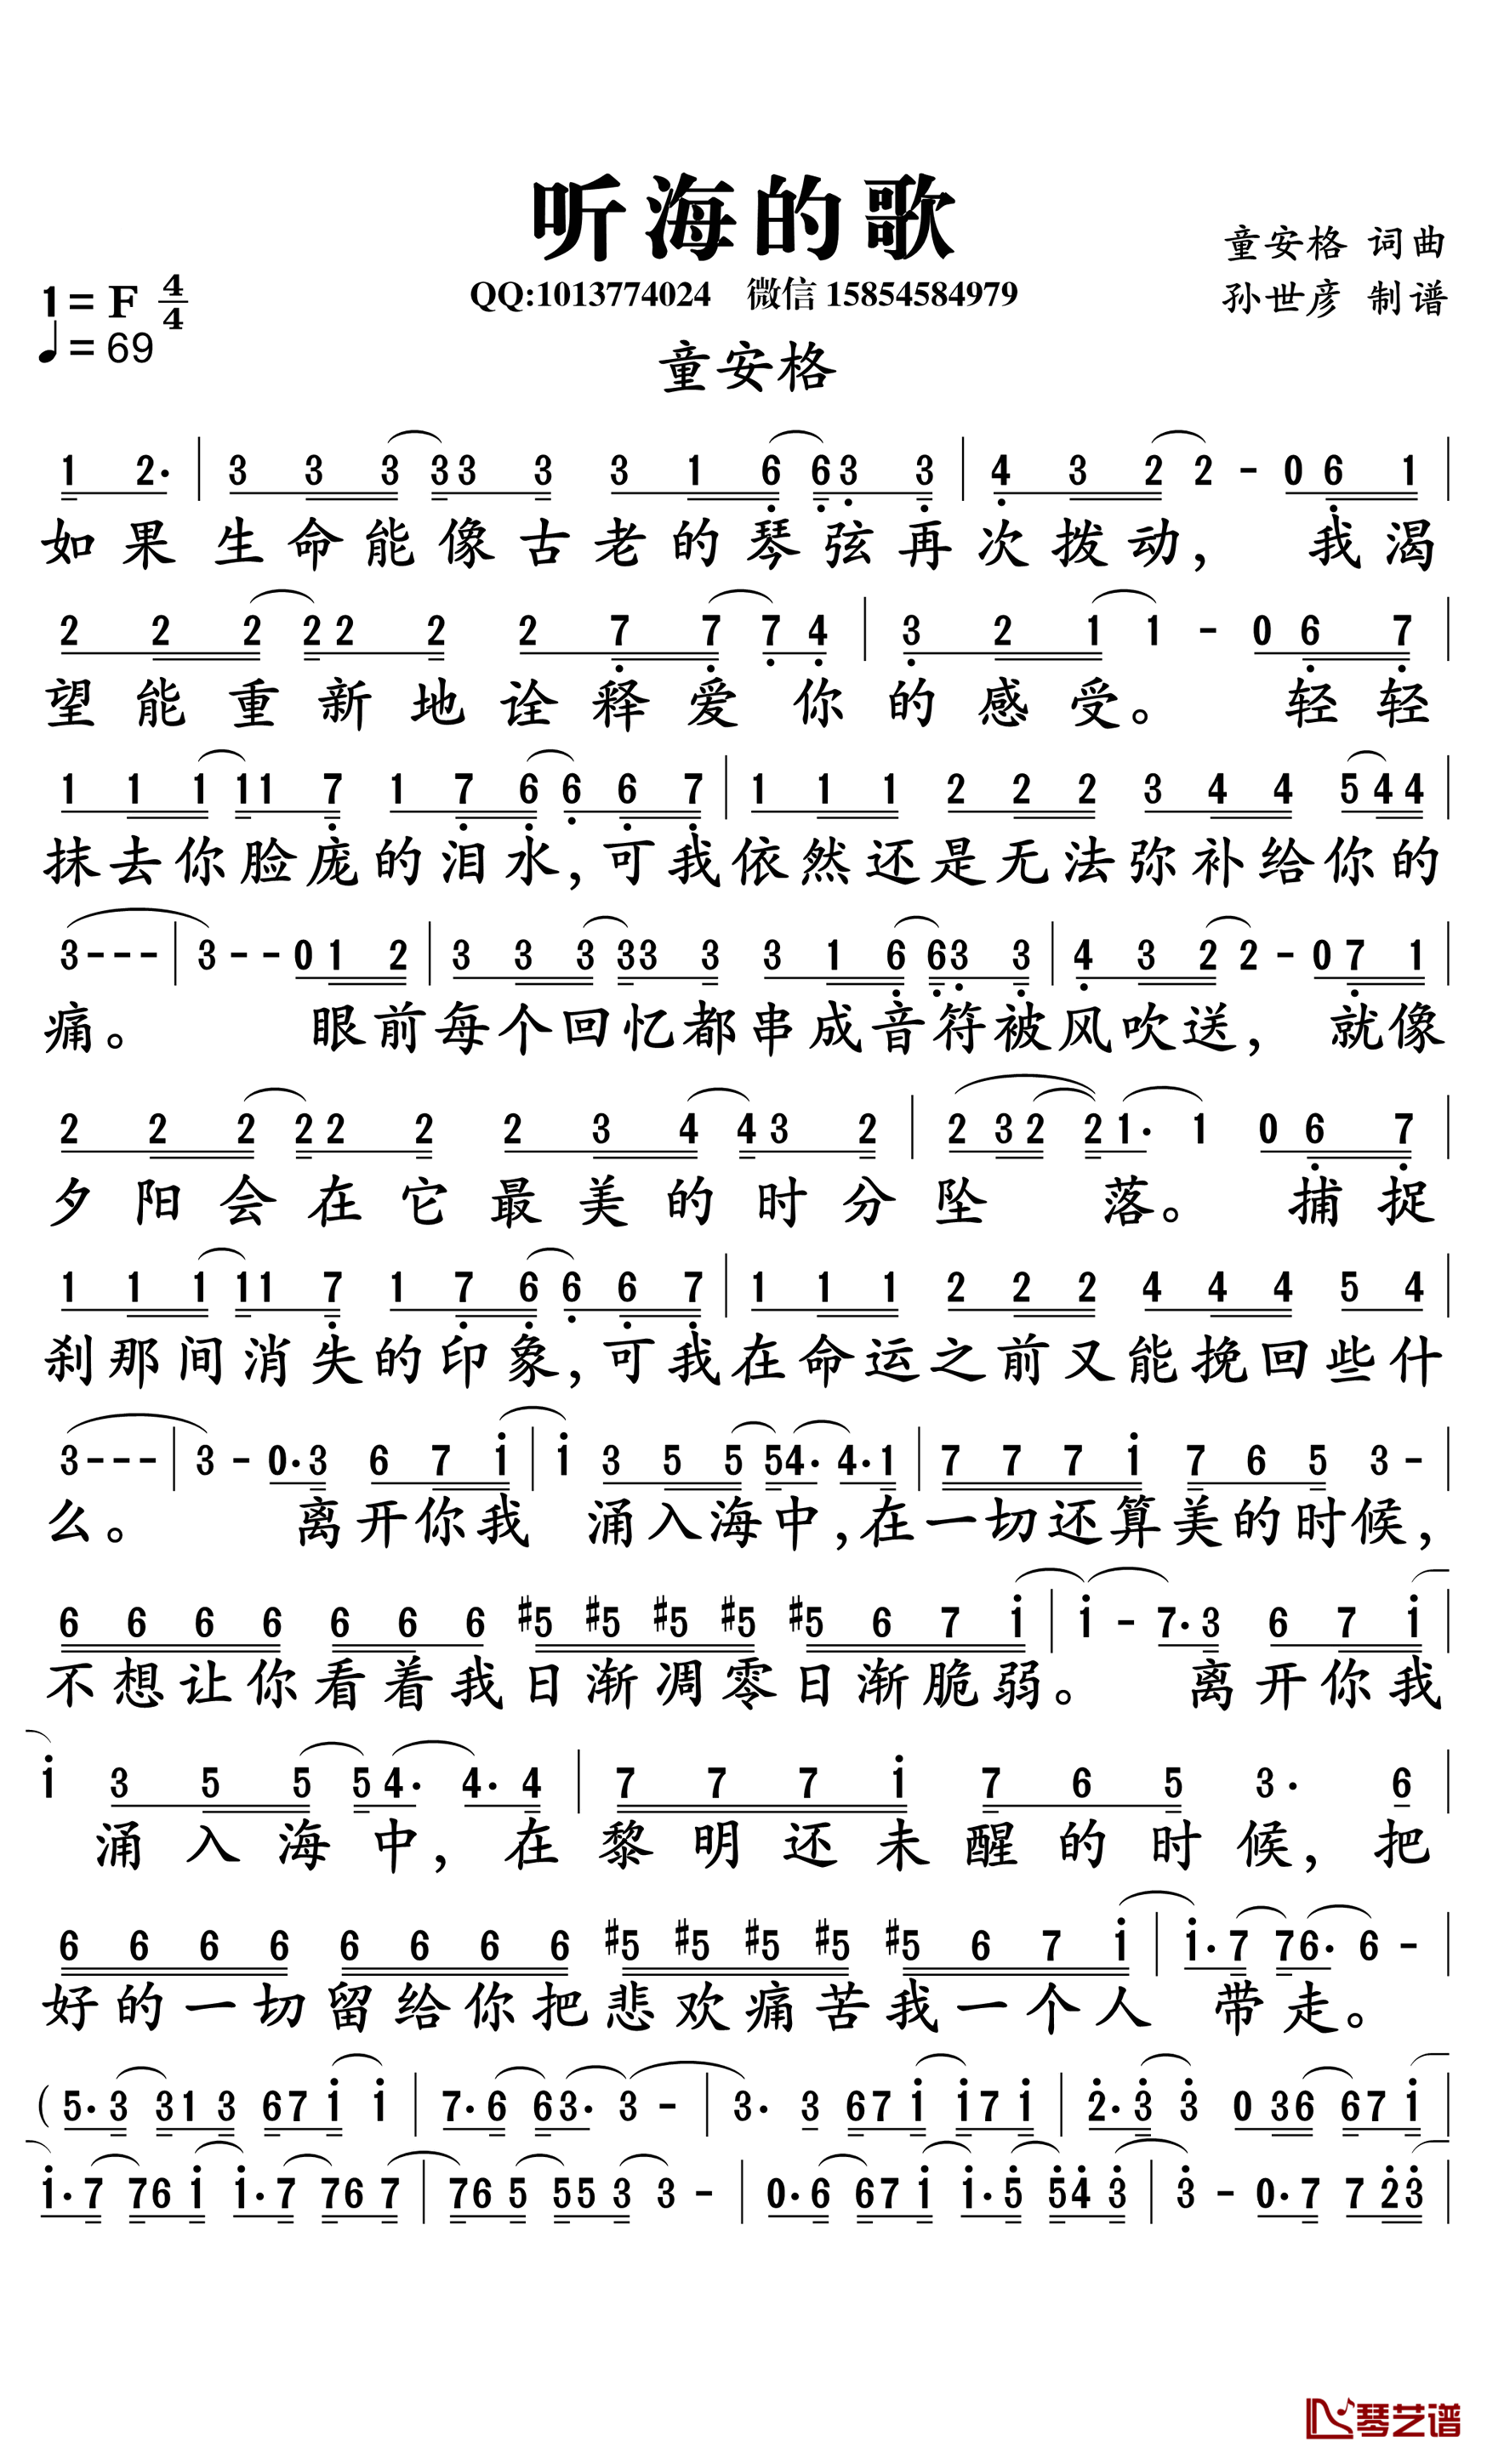 听海的歌
童安格 词曲
1= F 4/4
QQ:1013774024 微信 15854584979
孙世彦 制谱
♩= 69
童安格
1 2· | 3 3 3 3 3 3 3 1 6 6 3 3 | 4 3 2 2 - 0 6 1 |
如果生命能像古老的琴弦再次拨动, 我渴
2 2 2 2 2 2 2 7 7 7 4 | 3 2 1 1 - 0 6 7 |
望能重新地诠释爱你的感受。 轻轻
1 1 1 1 1 7 1 7 6 6 6 7 | 1 1 1 2 2 2 3 4 4 5 4 4 |
抹去你脸庞的泪水,可我依然还是无法弥补给你的
3 - - - | 3 - - 0 1 2 | 3 3 3 3 3 3 3 1 6 6 3 3 | 4 3 2 2 - 0 7 1 |
痛。 眼前每个回忆都串成音符被风吹送, 就像
2 2 2 2 2 2 2 3 4 4 3 2 | 2 3 2 2 1· 1 0 6 7 |
夕阳会在它最美的时分坠 落。 捕捉
1 1 1 1 1 7 1 7 6 6 6 7 | 1 1 1 2 2 2 4 4 4 5 4 |
刹那间消失的印象,可我在命运之前又能挽回些什
3 - - - | 3 - 0· 3 6 7 1 | 1 3 5 5 5 4· 4· 1 | 7 7 7 1 7 6 5 3 - |
么。 离开你我 涌入海中,在一切还算美的时候,
6 6 6 6 6 6 6 #5 #5 #5 #5 #5 6 7 1 | 1 - 7· 3 6 7 1 |
不想让你看着我日渐凋零日渐脆弱。 离开你我
1 3 5 5 5 4· 4· 4 | 7 7 7 1 7 6 5 3· 6 |
涌入海中,在黎明还未醒的时候,把
6 6 6 6 6 6 6 6 #5 #5 #5 #5 #5 6 7 1 | 1· 7 7 6· 6 - |
好的一切留给你把悲欢痛苦我一个人 带走。
( 5· 3 3 1 3 6 7 1 1 | 7· 6 6 3· 3 - | 3· 3 6 7 1 1 7 1 | 2· 3 3 0 3 6 6 7 1 |
1· 7 7 6 1 1· 7 7 6 7 | 7 6 5 5 5 3 3 - | 0· 6 6 7 1 1· 5 5 4 3 | 3 - 0· 7 7 2 3 |
琴艺谱